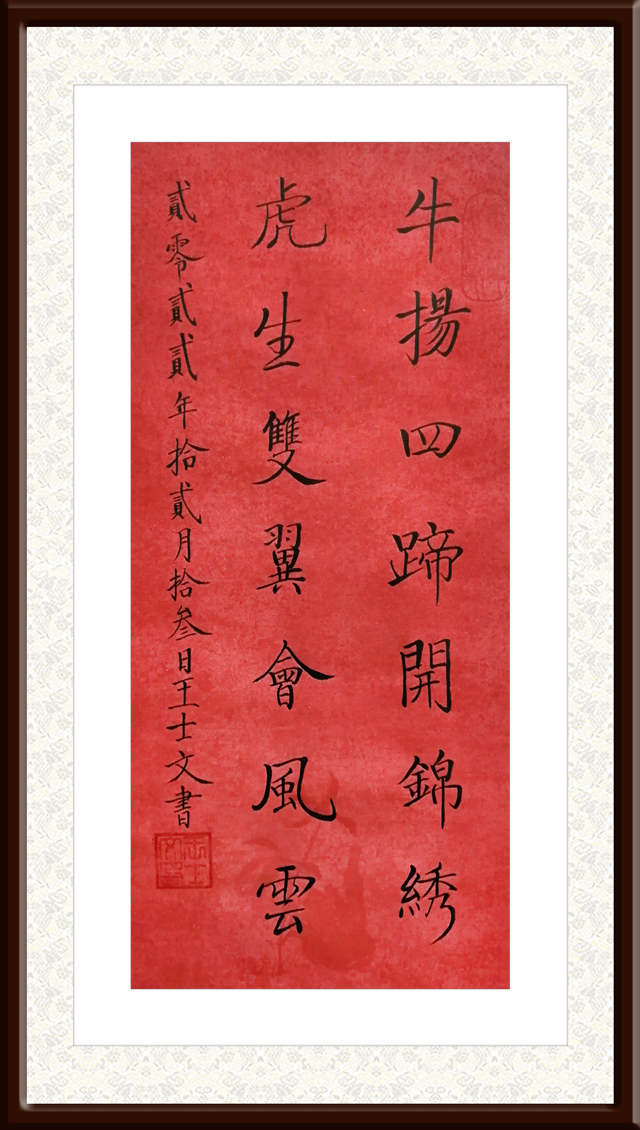 牛揚四蹄開錦綉
虎生雙翼會風雲
貳零貳貳年拾貳月拾叁日王士文書